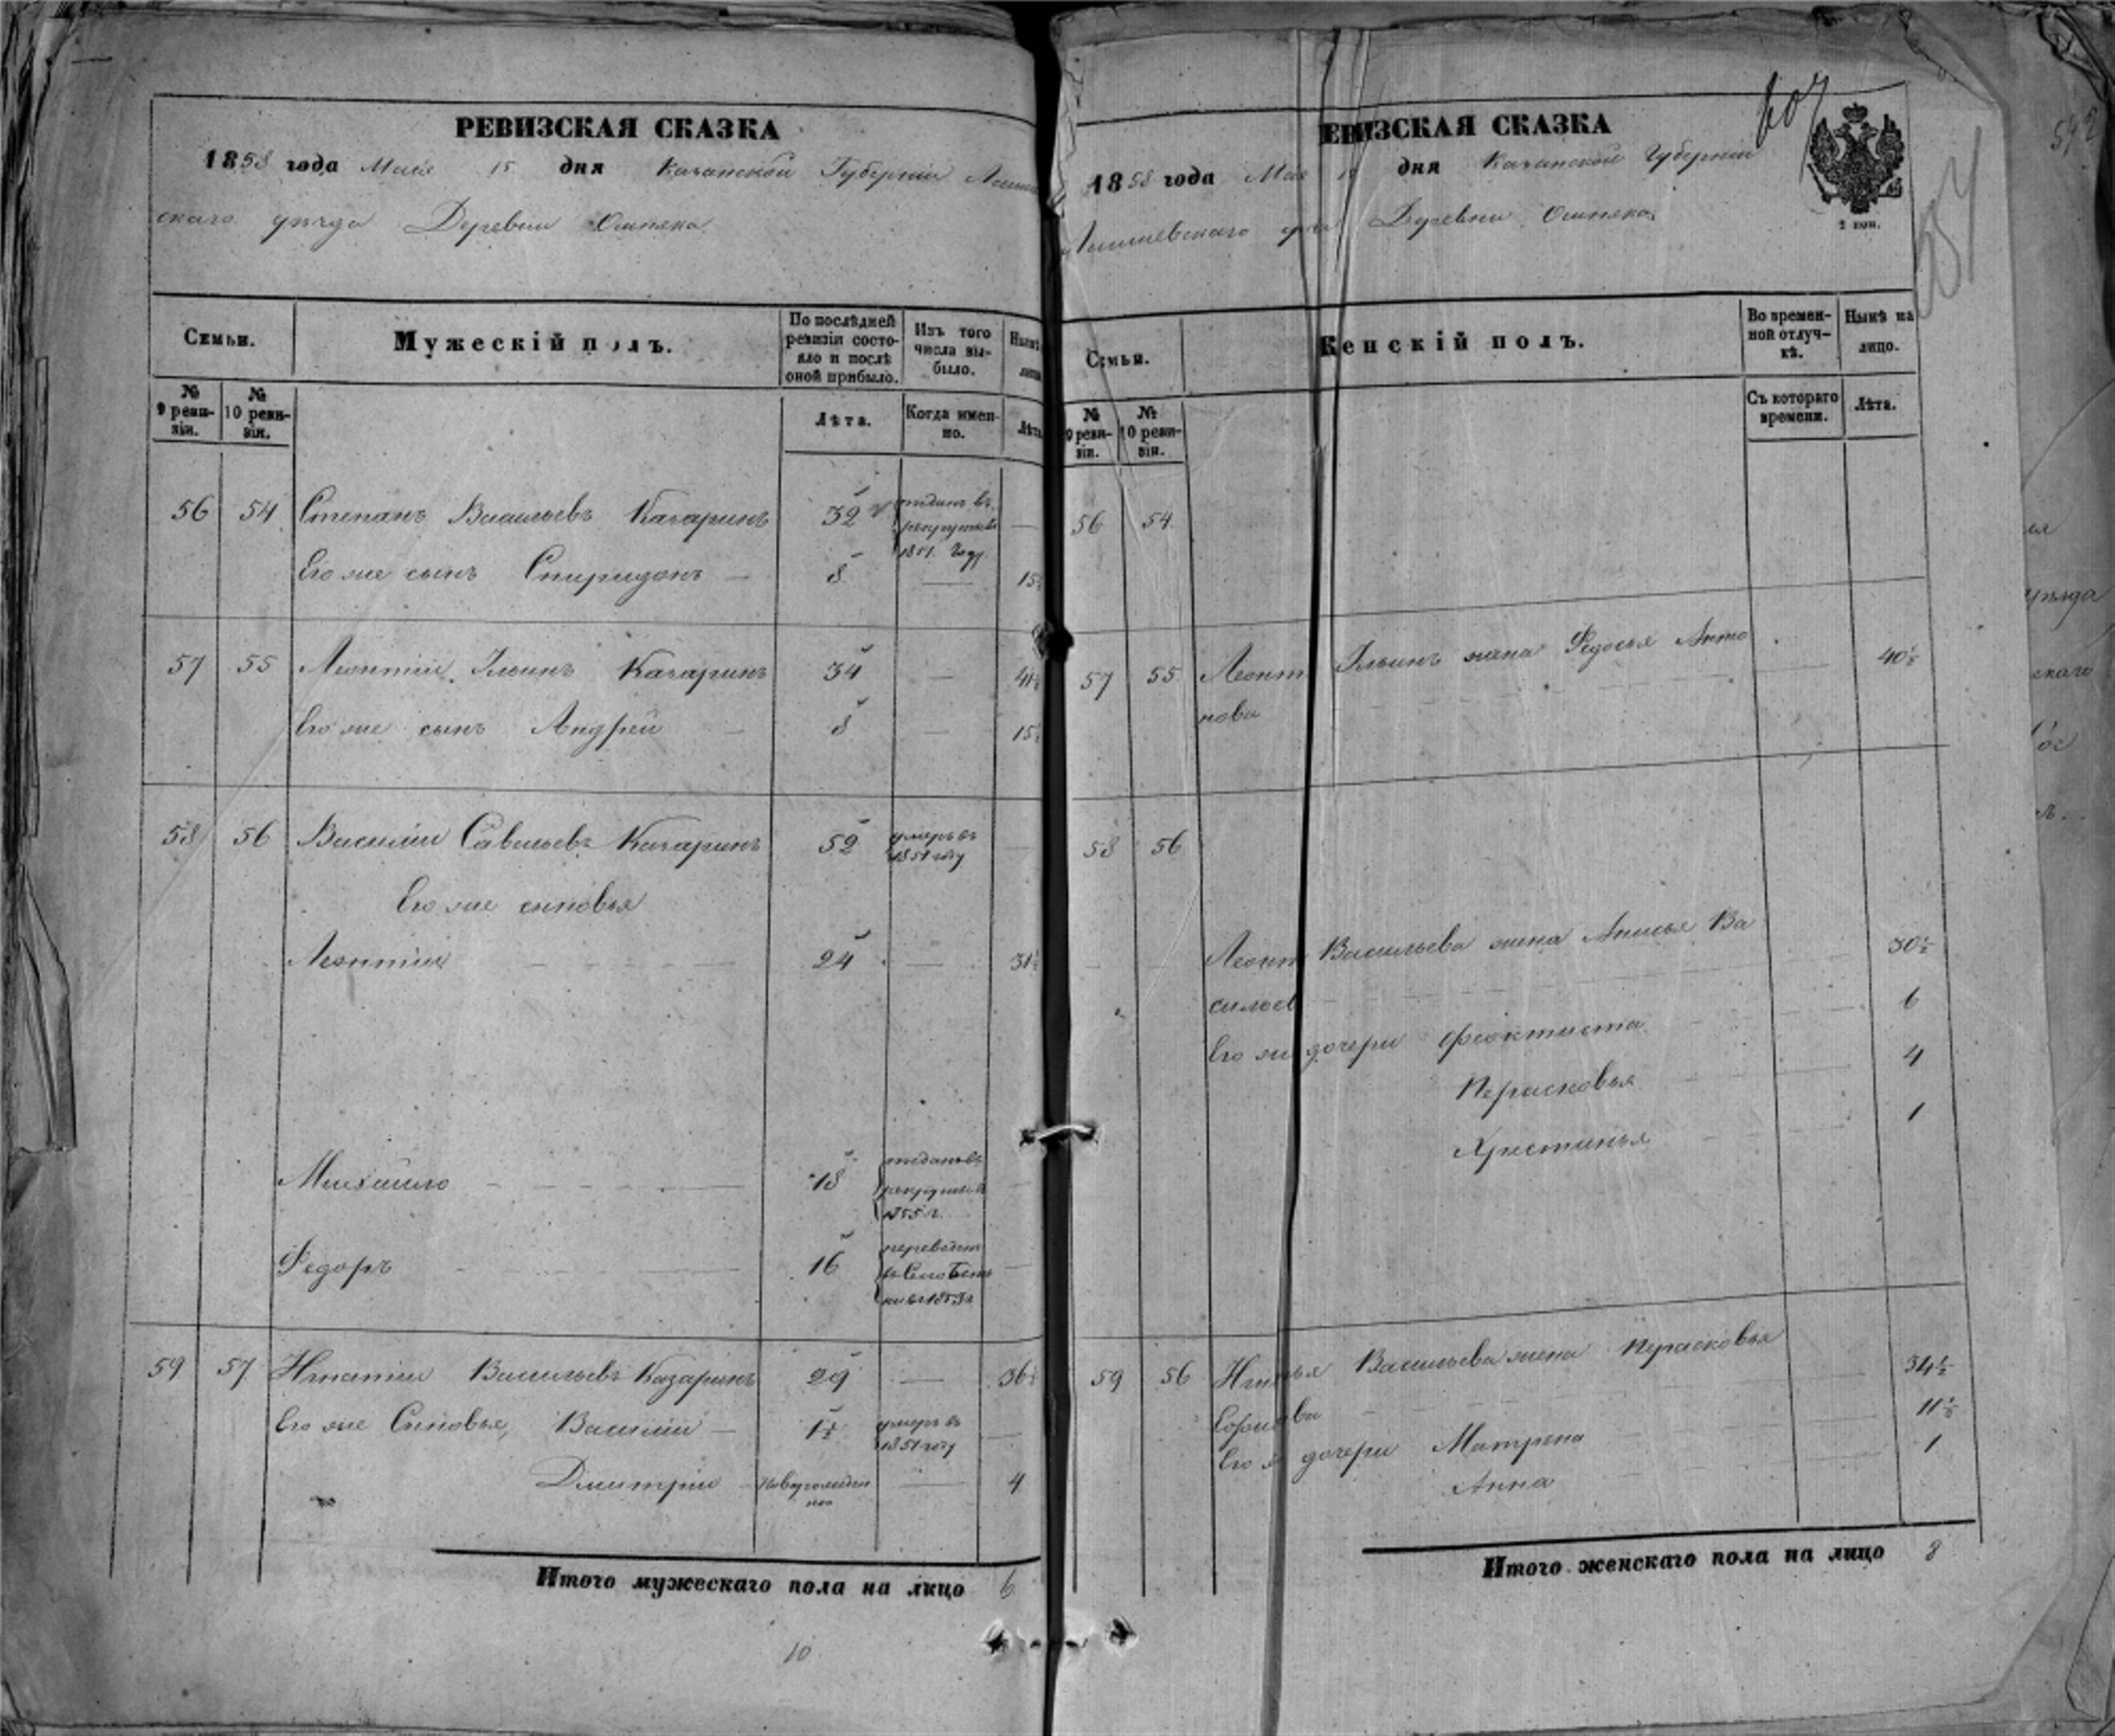 РЕВИЗСКАЯ СКАЗКА
1858 года Мая 15 дня Казанской Губернiи Лаише
скаго уѣзда Деревни Ошняка
Семьи.
Мужескiй полъ.
По послѣдней ревизiи состояло и послѣ оной прибыло.
Изъ того числа выбыло.
№ 9 ревизiи.
№ 10 ревизiи.
Лѣта.
Когда именно.
Лѣта
56 54 Степанъ Васильевъ Казаринъ 32 отданъ въ рекруты въ 1851 году —
Его же сынъ Спиридонъ — 8 — 15½
57 55 Леонтiй Ильинъ Казаринъ 34 — 41½
Его же сынъ Андрей — 8 — 15½
58 56 Василiй Савельевъ Казаринъ 52 умеръ въ 1851 году
Его же сыновья
Леонтiй 24 — 31½
Михайло 18 отданъ въ рекруты въ 1855 г.
Федоръ 16
59 57 Игнатiй Васильевъ Казаринъ 29 — 36½
Его же Сыновья, Василiй — 1½ умеръ въ 1851 году —
Дмитрiй — Новорожден — 4
Итого мужескаго пола на лицо 6
10
ЕВИЗСКАЯ СКАЗКА
607
1858 года Мая 15 дня Казанской Губернiи
Лаишевскаго Деревни Ошняка
2 коп.
Семьи.
Женскiй полъ.
Во временной отлучкѣ.
Нынѣ на лицо.
№ 9 ревизiи.
№ 10 ревизiи.
Съ котораго времени.
Лѣта.
56 54
57 55 Леонт Ильинъ жена Федосья Анто — 40½
нова
58 56
Леонт Васильева жена Анисья Ва 30½
сильев
Его же дочери Феоктиста 6
Пърасковья 4
Христинья 1
59 56 Игнатья Васильева жена Пърасковья 34½
Его дочери Матрена 11½
Анна 1
Итого женскаго пола на лицо 8